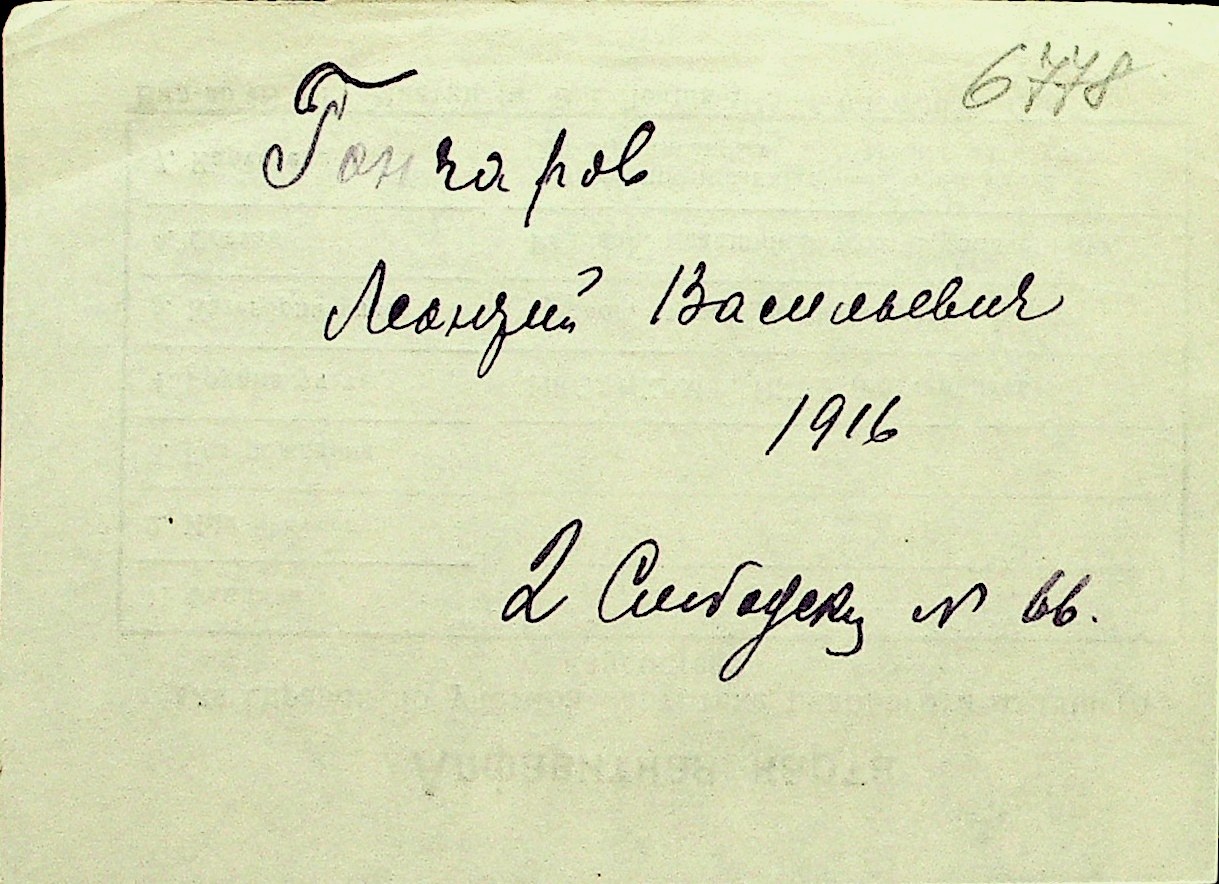 6778
Гончаров
Леонтий Васильевич
1916
2 Слободск № 66.